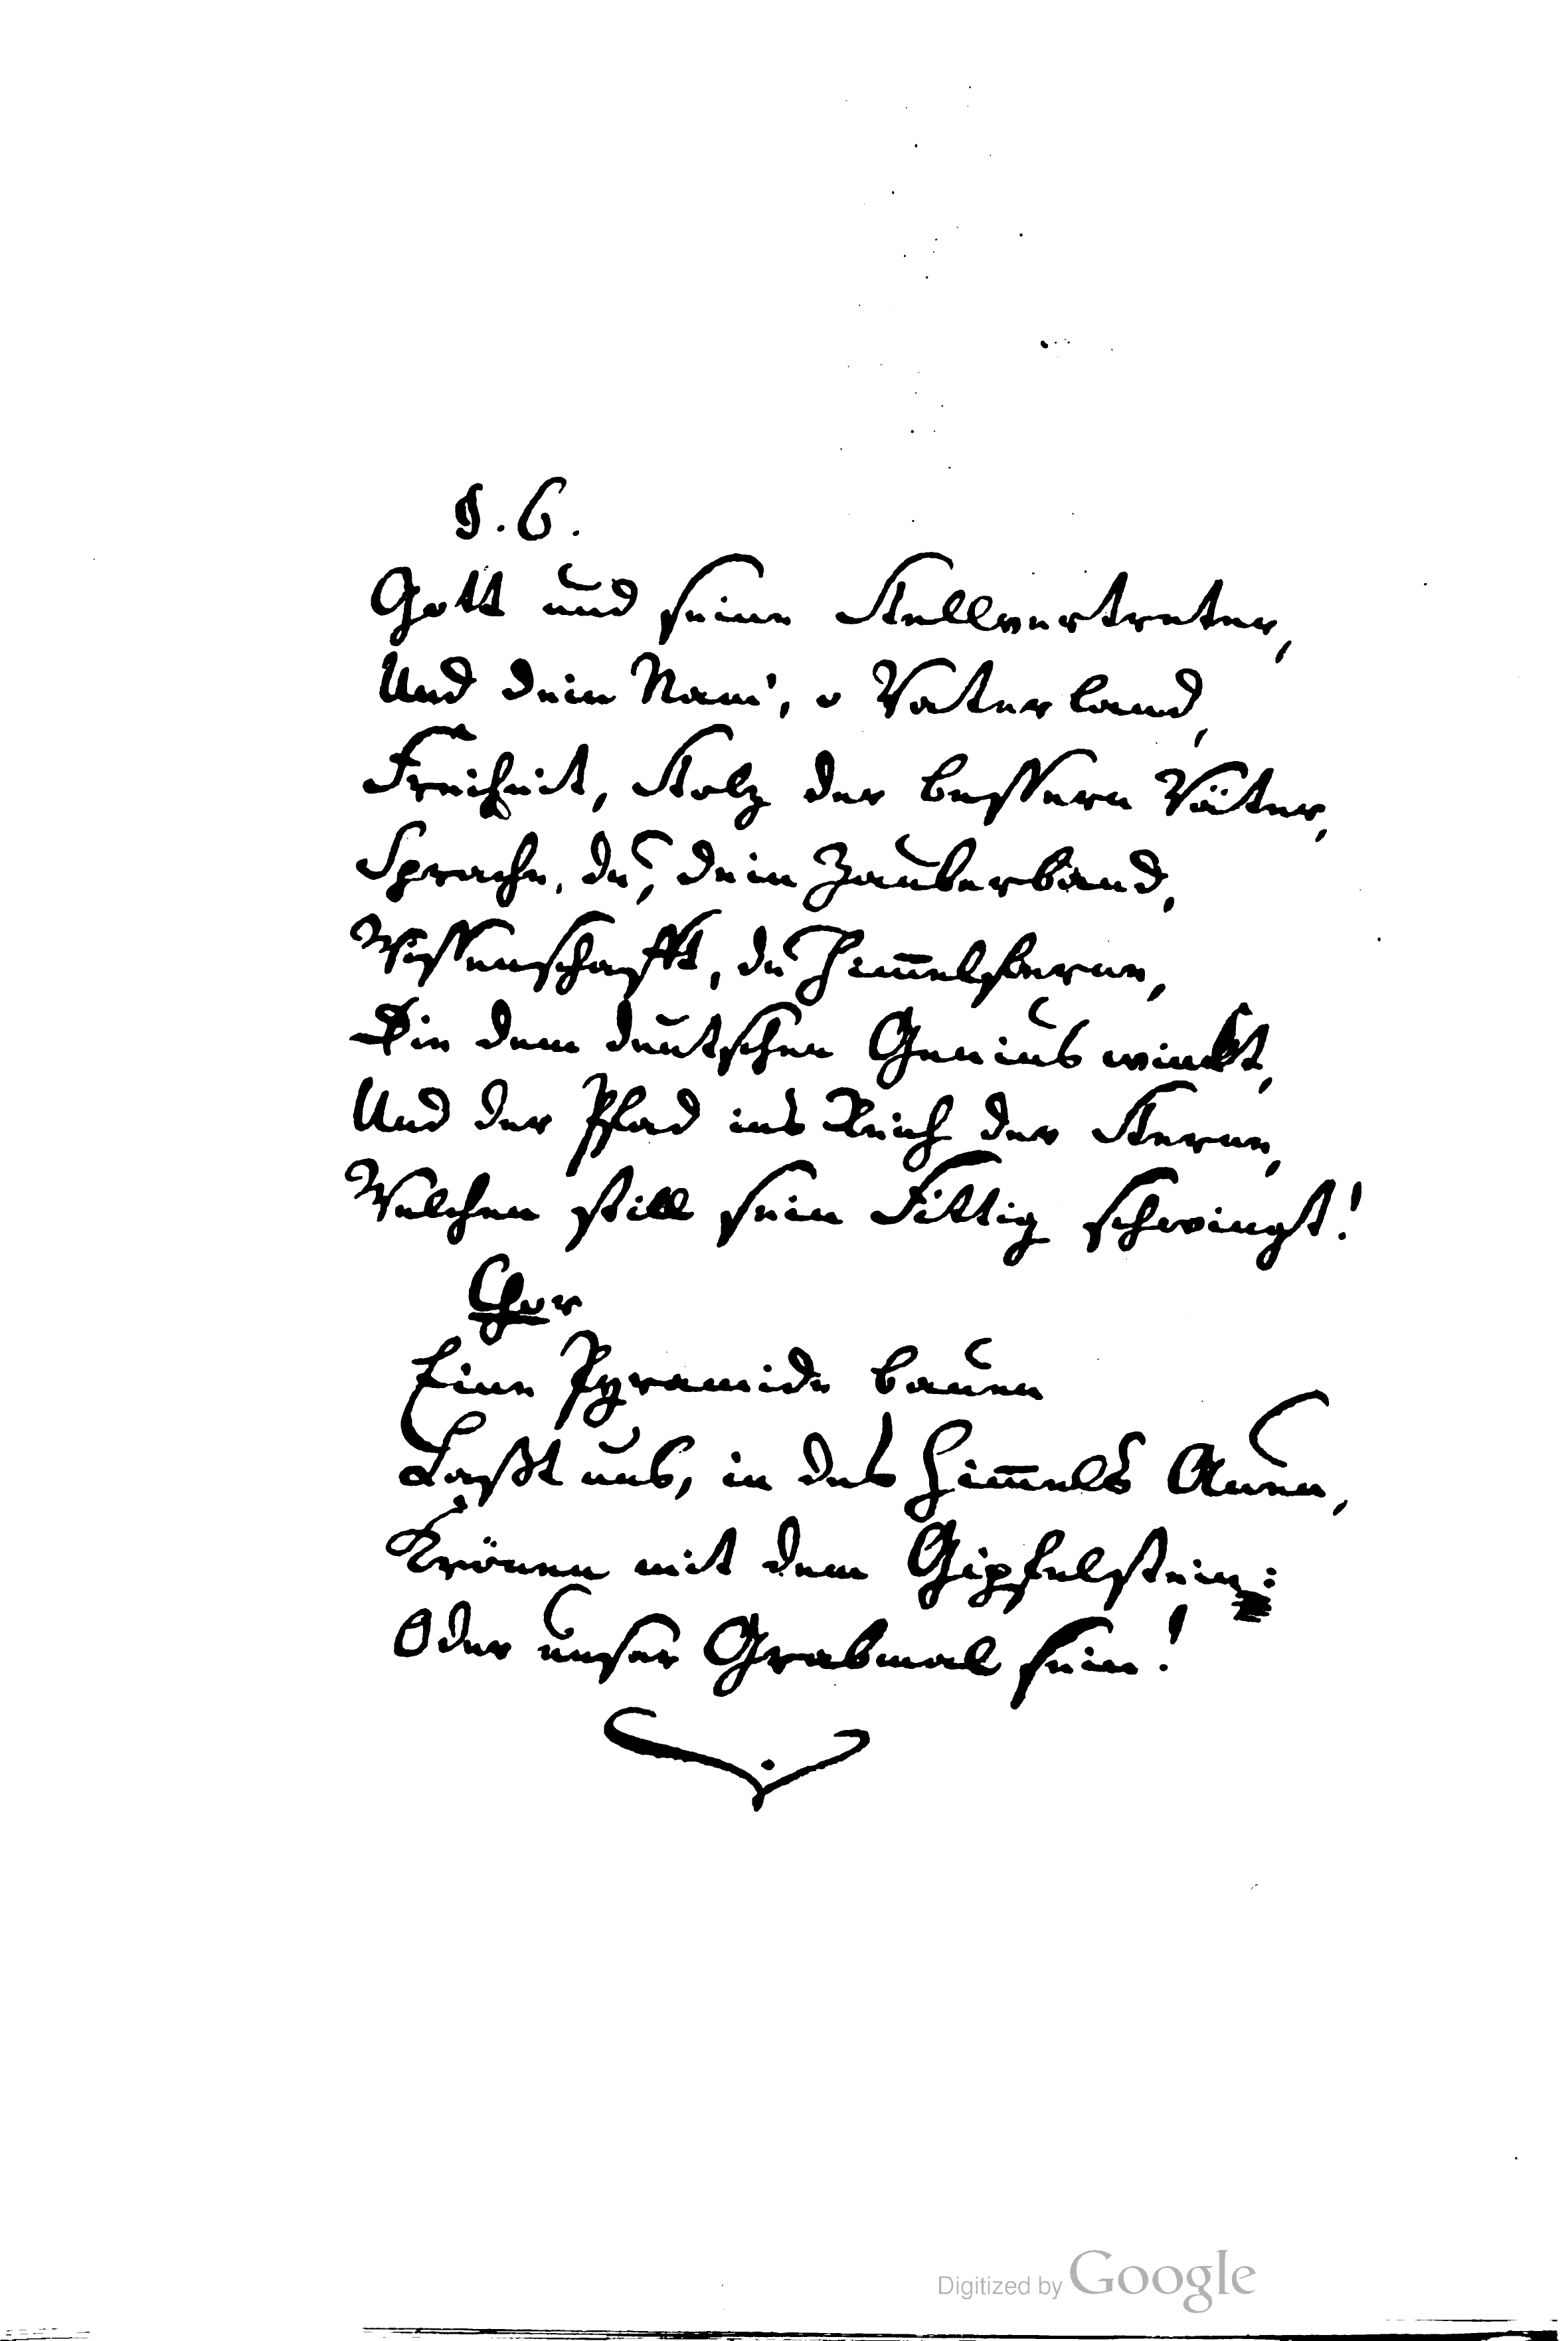 §. 6.
Gott und seine Stellvertreter,
Und dein Nam', o Vaterland,
Freiheit, Stolz der bessern Väter,
Sprache, du, dein Zauberband,
Wissenschafft, du Him̅elsferne,
Die dem deutschen Genius winckt,
Und der Pfad ins Reich der Sterne,
Welchen still sein Fittig schwingt!
Chor
Eine Pyramide bauen
Laßt uns, in des Him̅els Auen,
Krönen mit dem Gipfelstein:
Oder unser Grabmal sein!
Digitized by Google